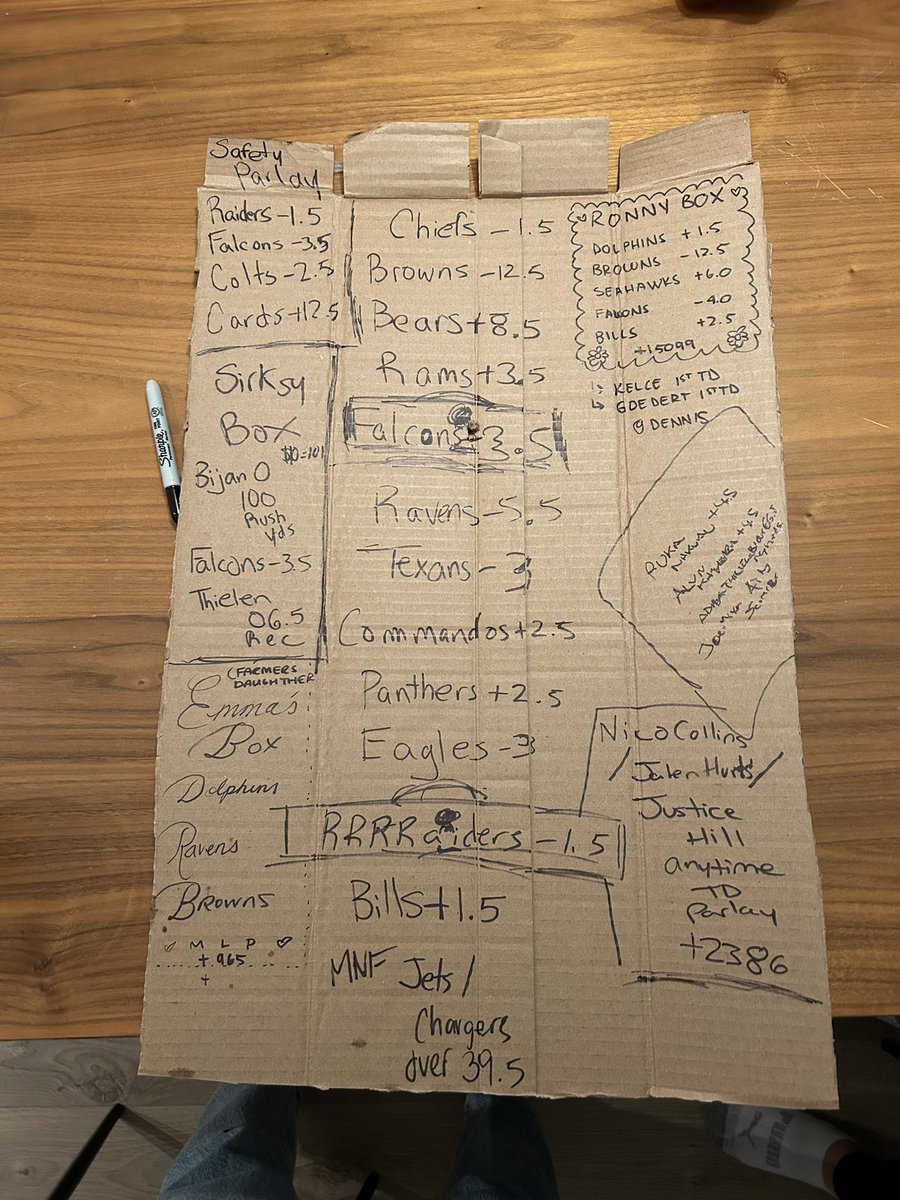 Safety
Parlay
Raiders -1.5
Falcons -3.5
Colts -2.5
Cards +12.5
Sirksy
Box
$10=101
Bijan O
100
Rush
Yds
Falcons -3.5
Thielen
O6.5
Rec
(FARMERS
DAUGHTHER)
Emma's
Box
Dolphins
Ravens
Browns
M L P
+965
+
Chiefs -1.5
Browns -12.5
Bears +8.5
Rams +3.5
Falcons -3.5
Ravens -5.5
Texans -3
Commandos +2.5
Panthers +2.5
Eagles -3
RRRRaiders -1.5
Bills +1.5
MNF Jets/
Chargers
over 39.5
RONNY BOX
DOLPHINS +1.5
BROWNS -12.5
SEAHAWKS +6.0
FALCONS -4.0
BILLS +2.5
+15099
KELCE 1ST TD
GOEDERT 1ST TD
@ DENNIS
PUKA
NAKUA +45
ALVIN
KAMARA +45
Joe Mixon
Nico Collins
/ Jalen Hurts /
Justice
Hill
anytime
TD
Parlay
+2386
Sharpie
PUMA